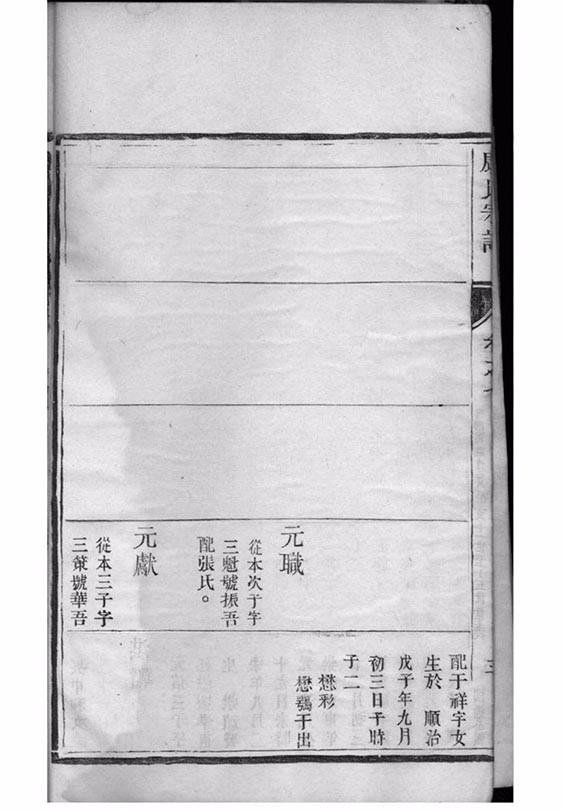 氏宗譜
三
配于祥宇女
生於 順治
戊子年九月
初三日午時
子二
懋彩
懋鶚于出
元職
從本次子字
三魁號振吾
配張氏。
元獻
從本三子字
三策號華吾